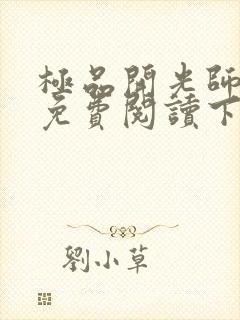 極品開光師
免費閱讀下
劉小草